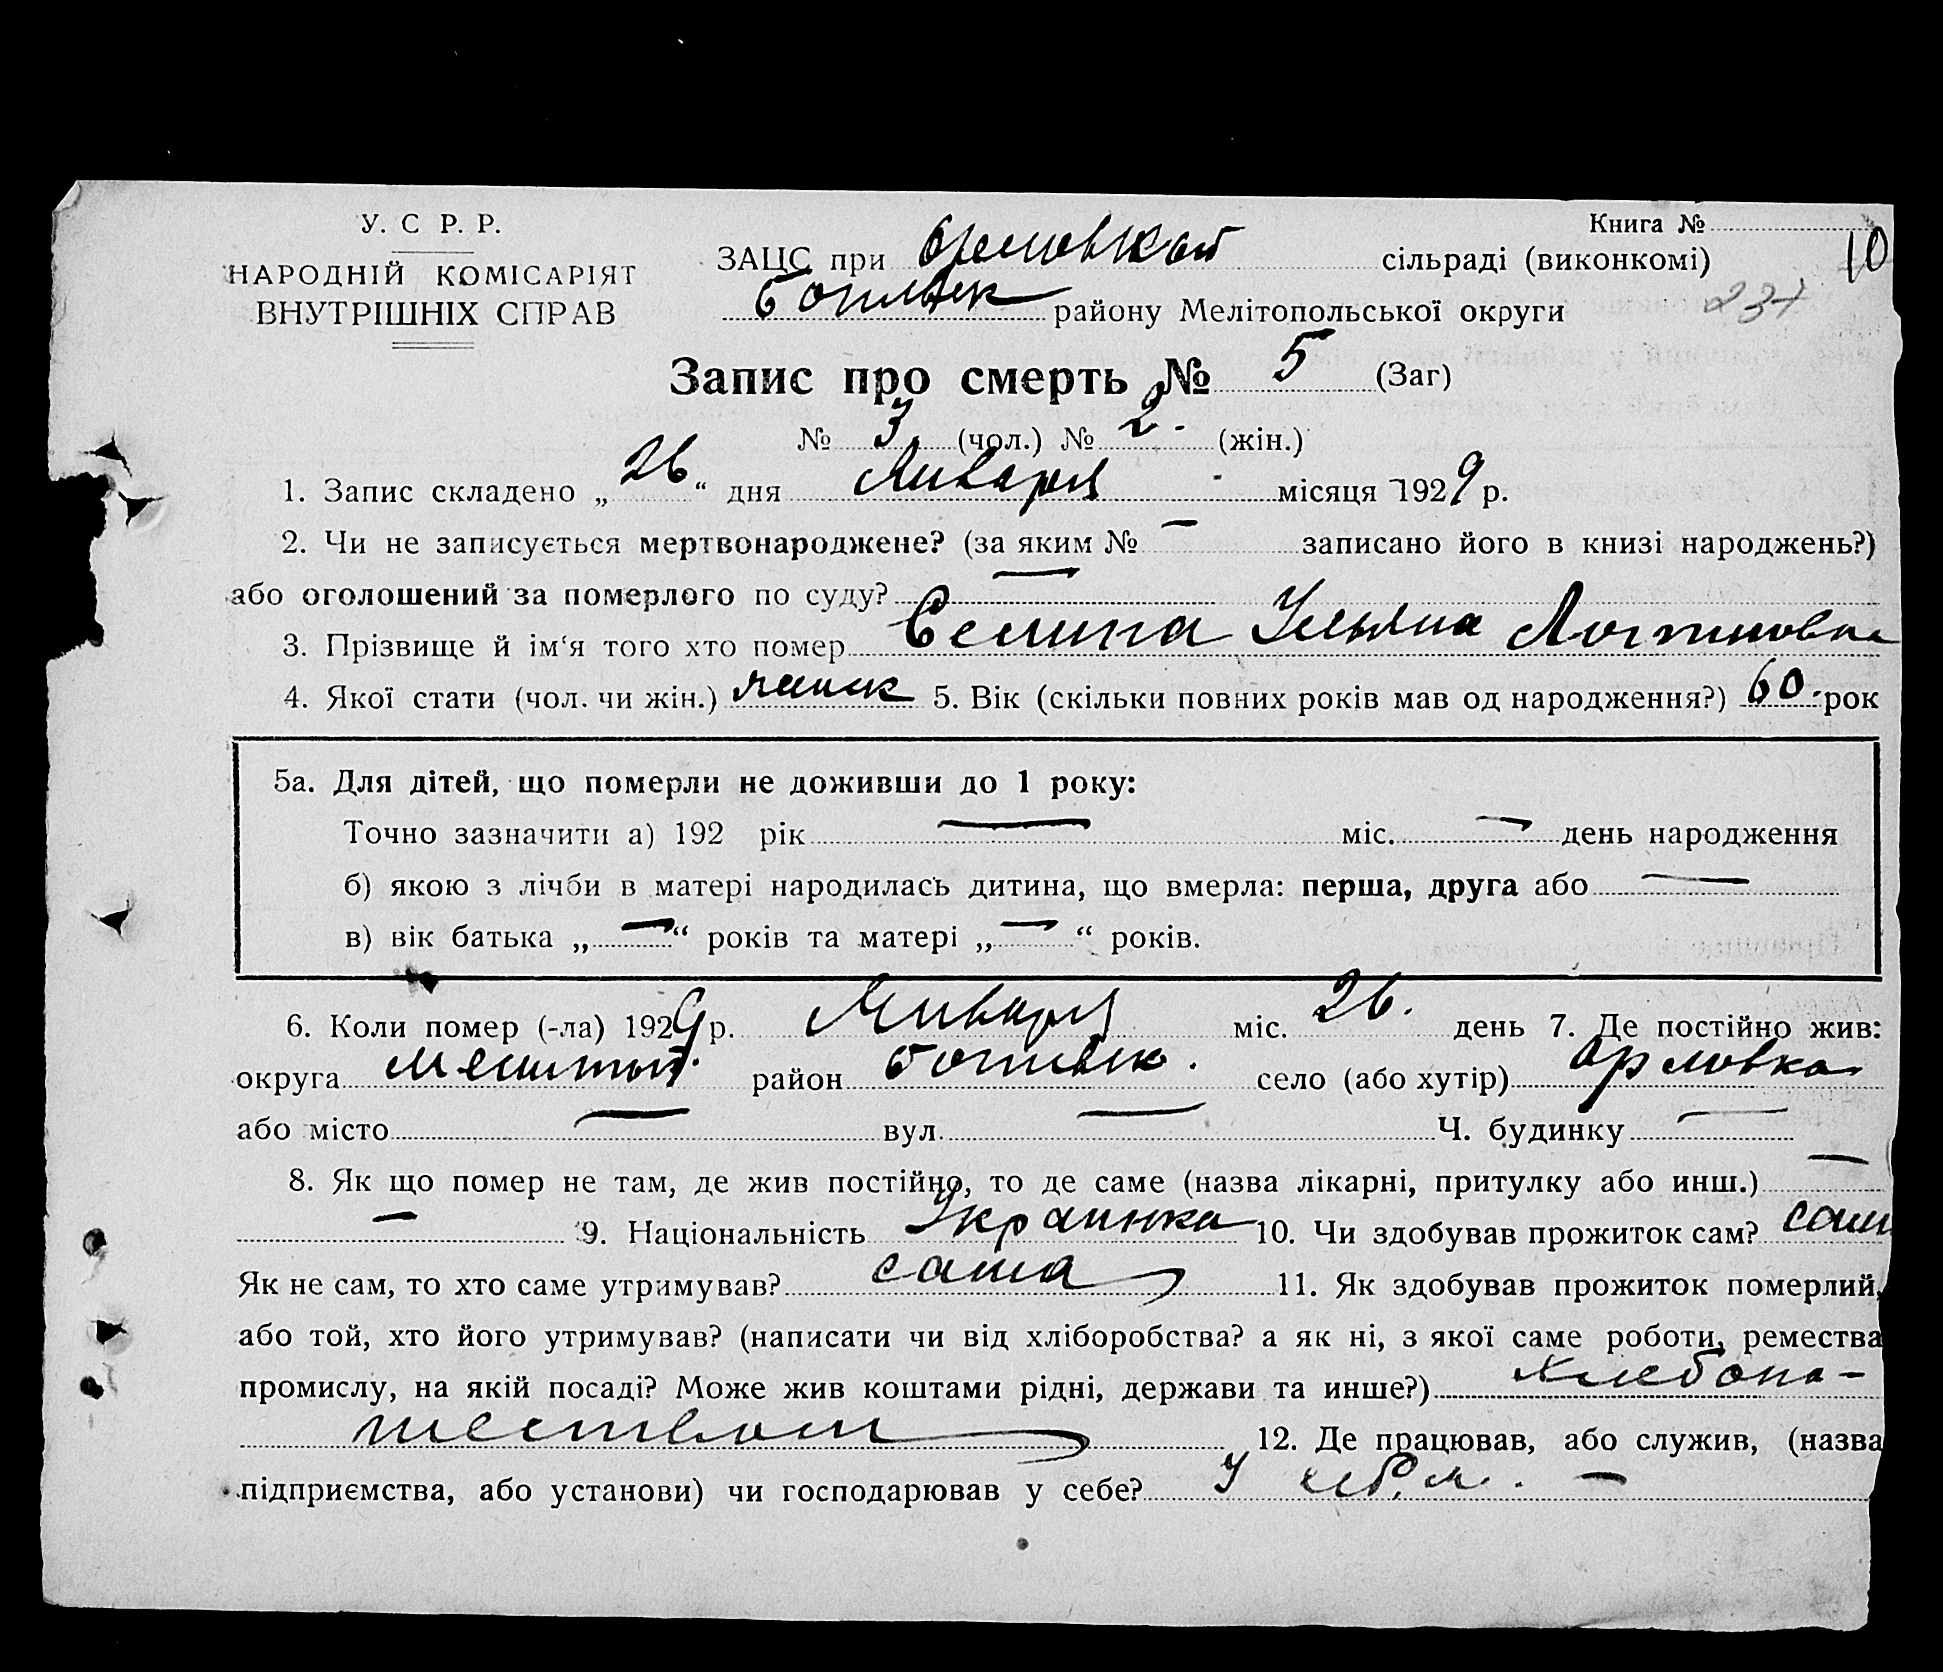 У. С. Р. Р.
НАРОДНІЙ КОМІСАРІЯТ
ВНУТРІШНІХ СПРАВ
Книга №
10
ЗАЦС при Орловской сільраді (виконкомі)
районy Мелітопольської округи
Запис про смерть № 5 (Заг)
№ 3 (чол.) № 2. (жін.)
1. Запис складено „26“ дня Января місяця 1929 р.
2. Чи не записується мертвонароджене? (за яким № — записано його в книзі народжень?)
або оголошений за померлого по суду? —
3. Прізвище й ім‘я того хто помер Семина Ульяна Логиновна
4. Якої стати (чол. чи жін.) женск 5. Вік (скільки повних років мав од народження?) 60. рок
5а. Для дітей, що померли не доживши до 1 року:
Точно зазначити а) 192 рік — міс. — день народження
б) якою з лічби в матері народилась дитина, що вмерла: перша, друга або —
в) вік батька „—“ років та матері „—“ років.
6. Коли помер (-ла) 1929 р. Января міс. 26. день 7. Де постійно жив:
округа Мелитоп. район село (або хутір) Орловка
або місто — вул. — Ч. будинку —
8. Як що помер не там, де жив постійно, то де саме (назва лікарні, притулку або инш.) —
— 9. Національність Украинка 10. Чи здобував прожиток сам? сам
Як не сам, то хто саме утримував? сама 11. Як здобував прожиток померлий,
або той, хто його утримував? (написати чи від хліборобства? а як ні, з якої саме роботи, ремества
промислу, на якій посаді? Може жив коштами рідні, держави та инше?) хлебопа-
шеством 12. Де працював, або служив, (назва
підприємства, або установи) чи господарював у себе? У себя. —